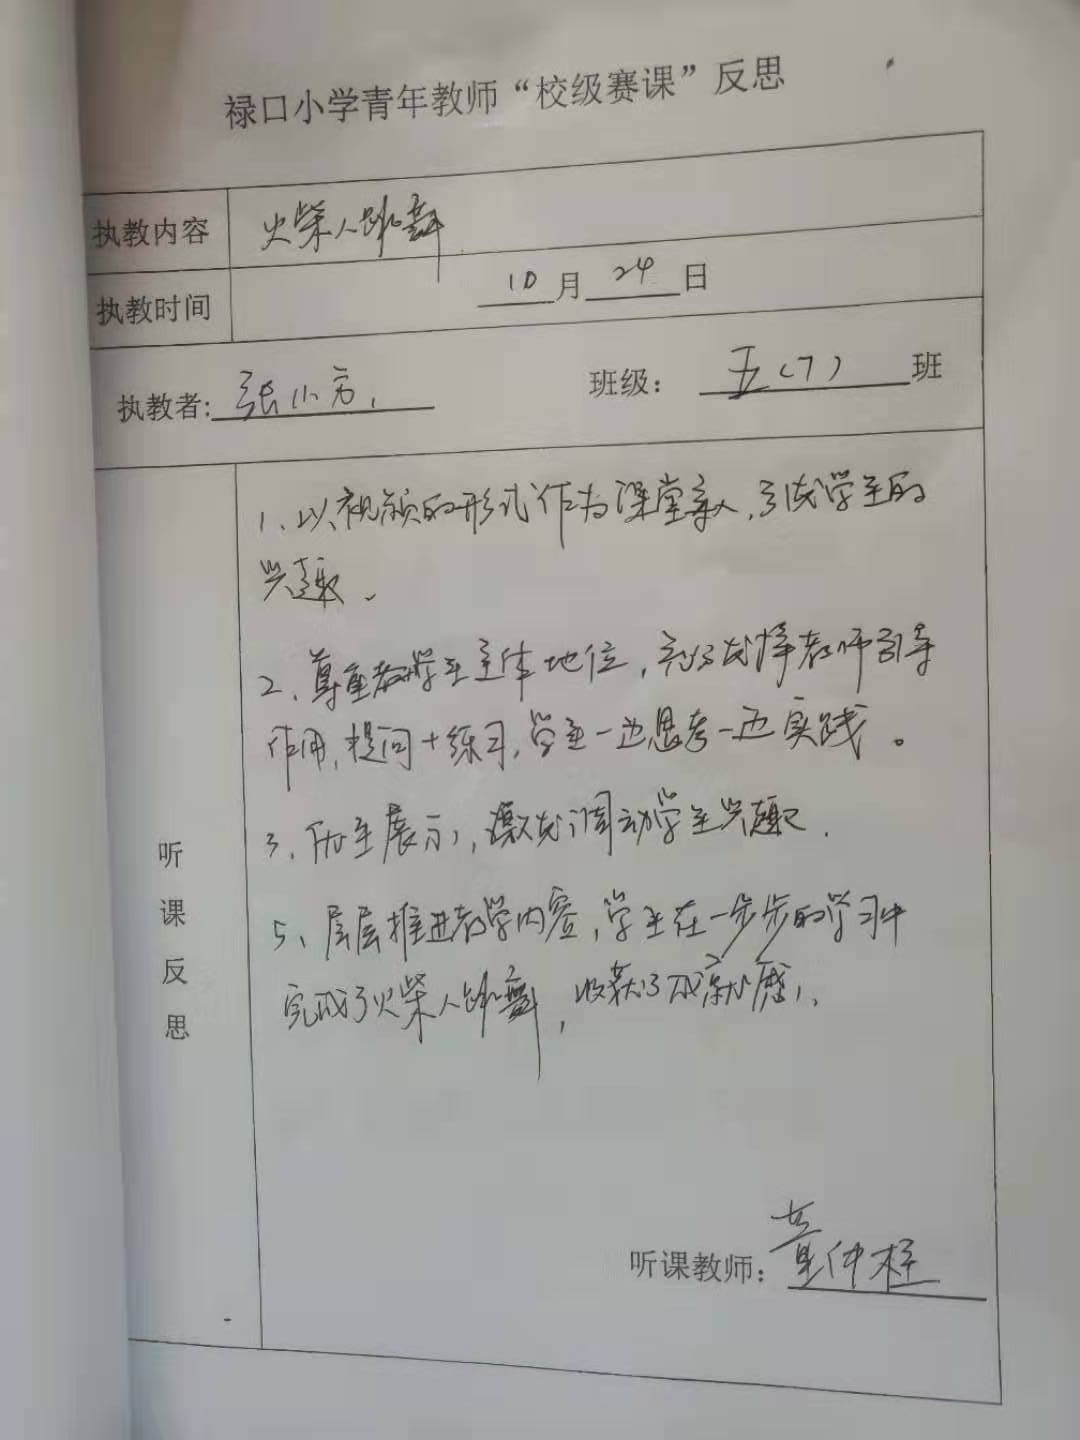 禄口小学青年教师“校级赛课”反思
执教内容 火柴人跳舞
执教时间 10月24日
执教者: 张小方 班级: 五(7)班
听课反思
1、以视频的形式作为课堂导入,引发学生的
兴趣。
2、尊重教学生主体地位,充分发挥教师引导
作用,提问+练习,学生一边思考一边实践。
3、师生展示,激发调动学生兴趣.
5、层层推进教学内容,学生在一步步的学习中
完成了火柴人跳舞,收获了成就感,.
听课教师: 童仲